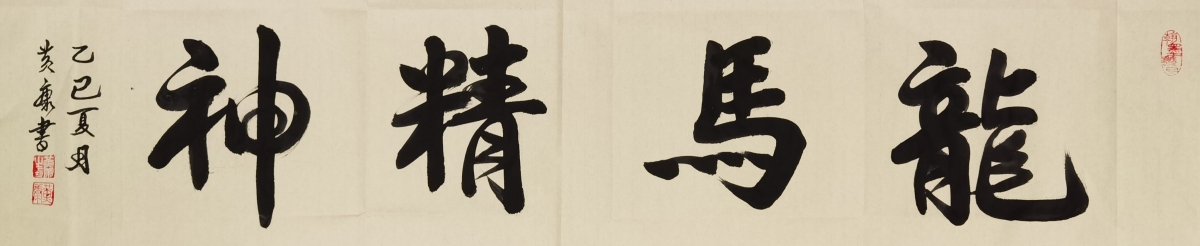 龍馬精神
乙巳夏月
黄康書